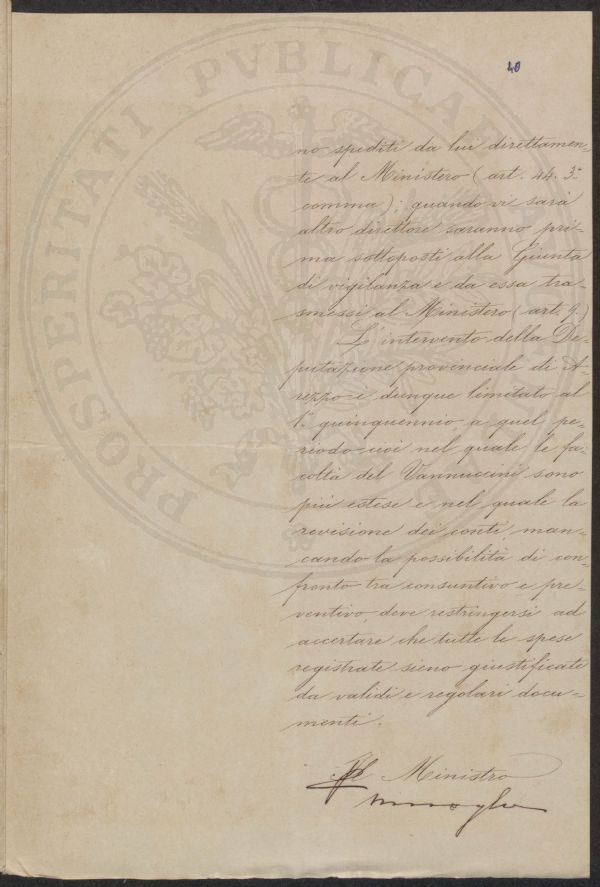 20
no spediti da lui direttamen-
te al Ministero (art. 44. 3°
comma); quando vi sarà
altro direttore saranno pri-
ma sottoposti alla Giunta
di vigilanza e da essa tra-
smessi al Ministero (art. 9.)
L'intervento della De-
putazione provinciale di A-
rezzo è dunque limitato al
1° quinquennio, a quel pe-
riodo cioè nel quale le fa-
coltà del Vannuccini sono
più estese e nel quale la
revisione dei conti, man-
cando la possibilità di con-
fronto tra consuntivo e pre-
ventivo, deve restringersi ad
accertare che tutte le spese
registrate sieno giustificate
da validi e regolari docu-
menti.
Il Ministro
PROSPERITATI PVBLICAE